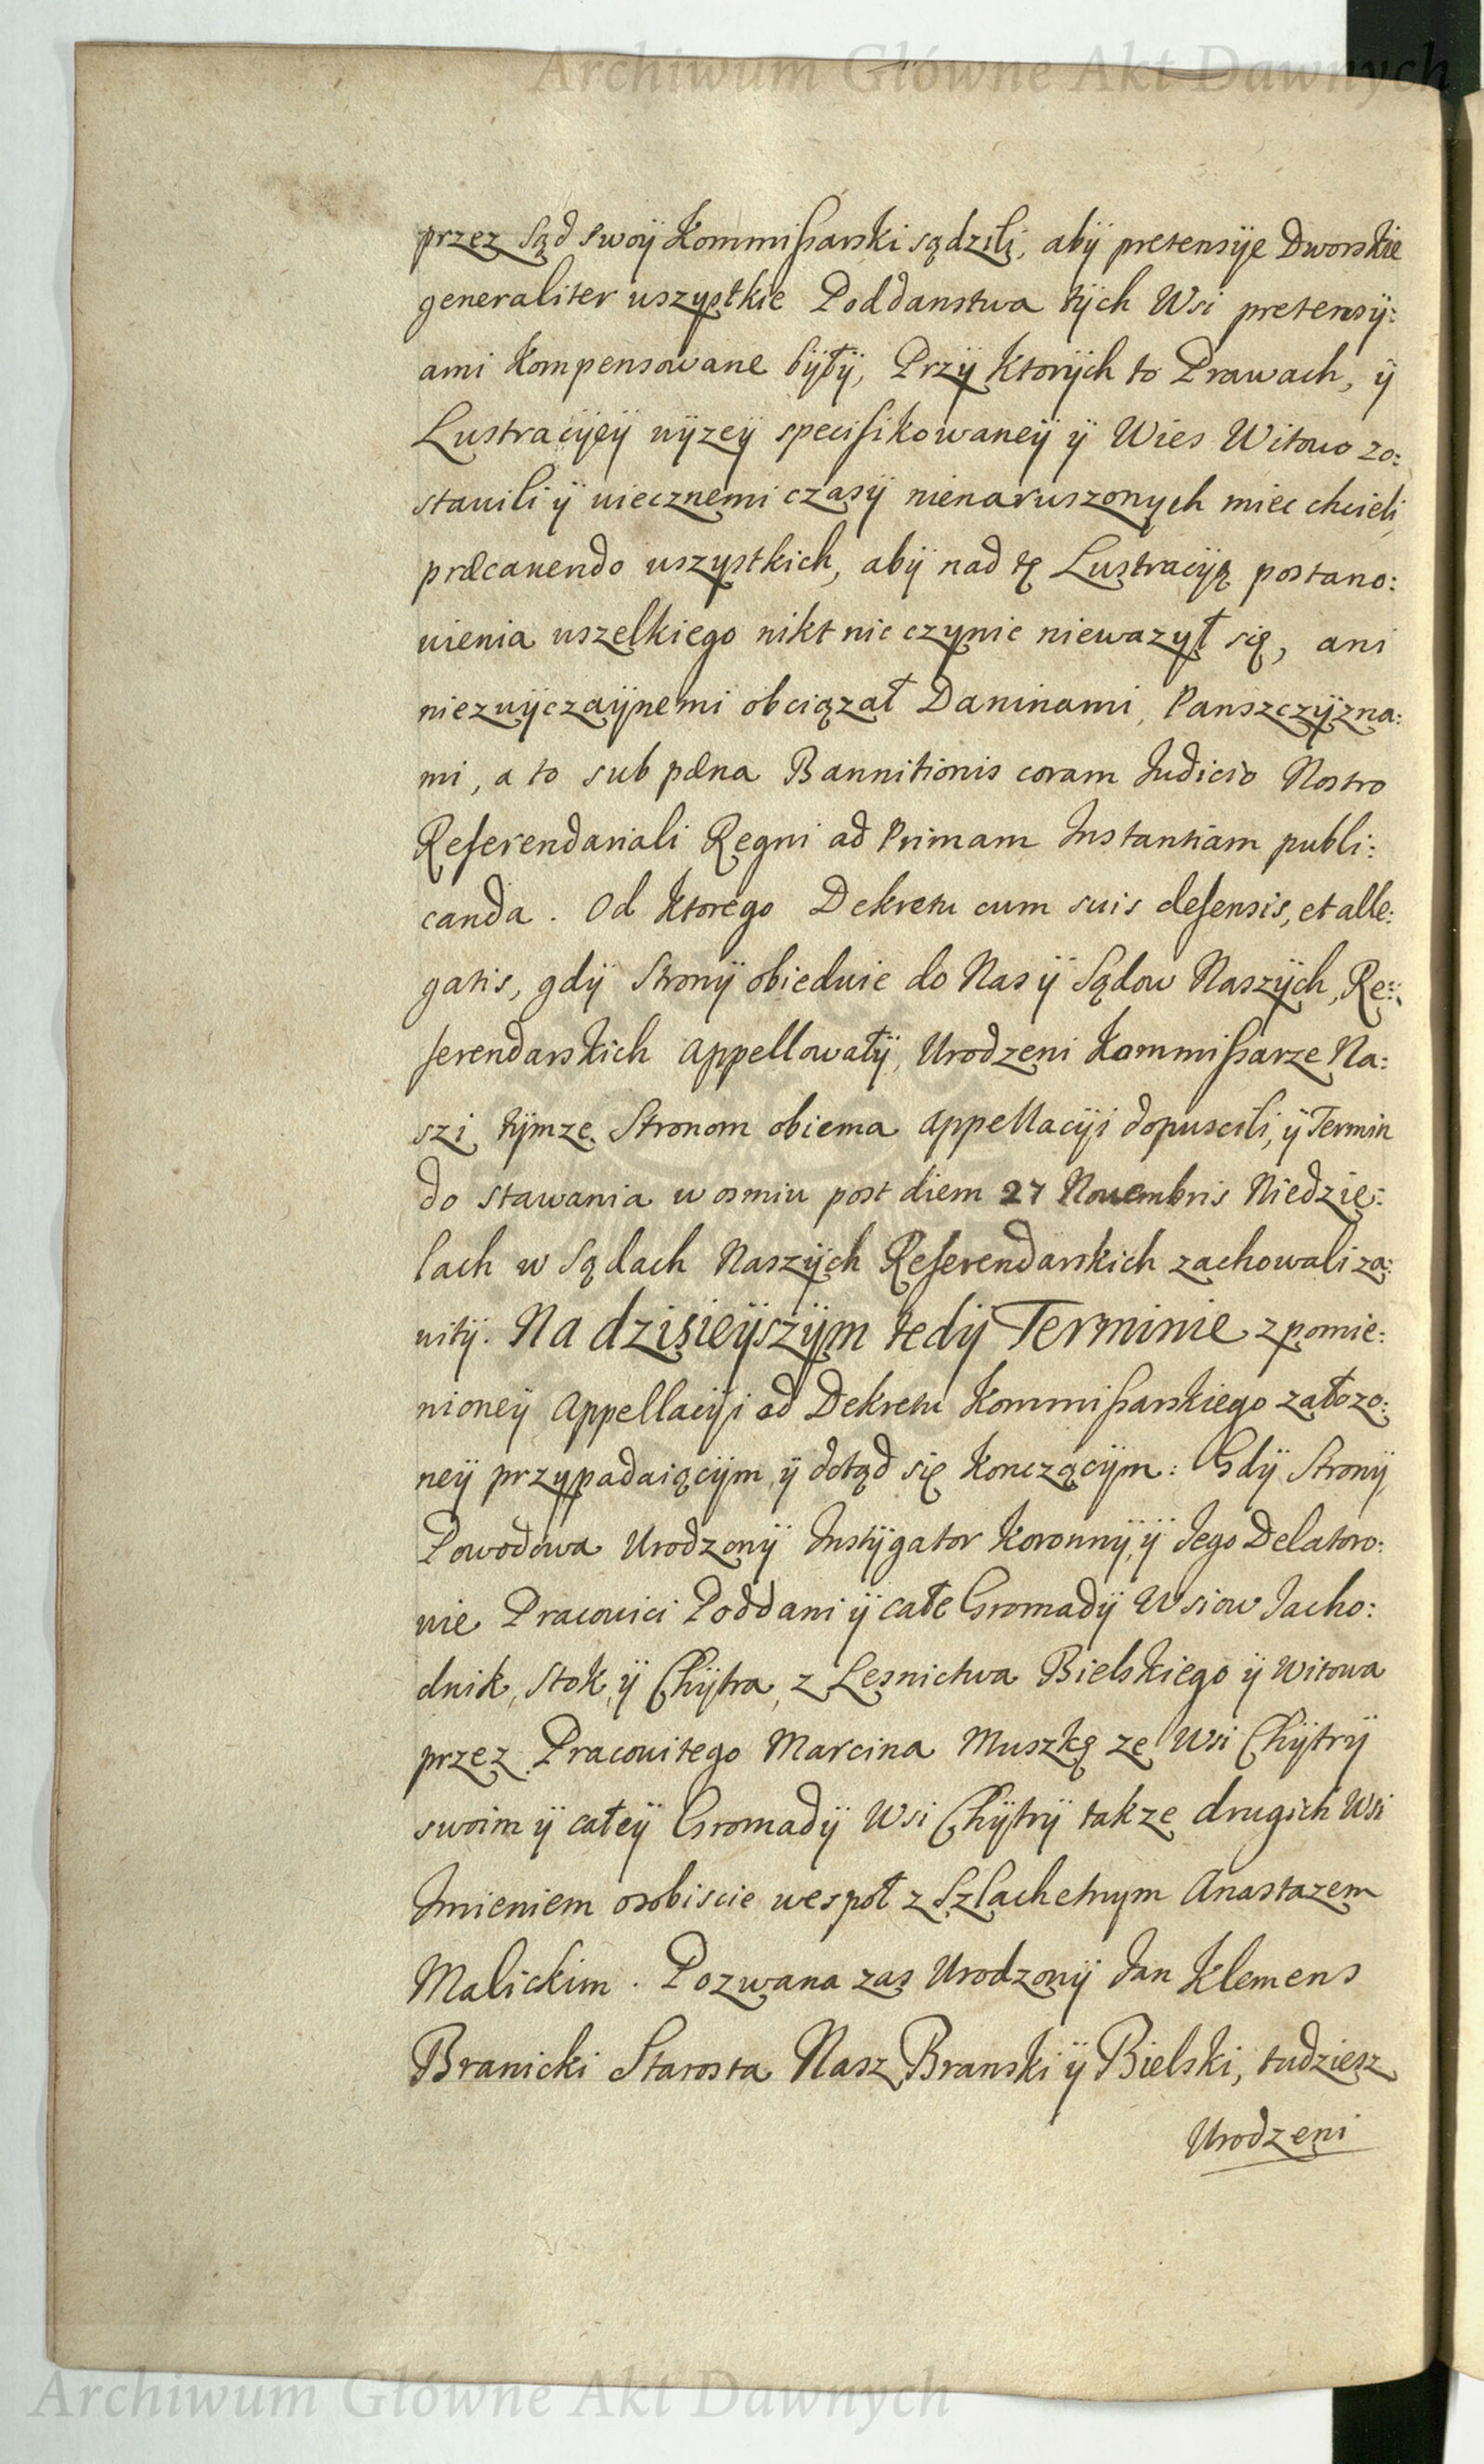 Archiwum Główne Akt Dawnych
przez Sąd swoÿ Kommißarski sądzili, abÿ pretensÿe Dworskie
generaliter wszystkie Poddanstwa tÿch Wsi pretensÿ:
ami kompensowane bÿłÿ, Przÿ ktorÿch to Prawach, ÿ
Lustracÿeÿ wÿzeÿ specifikowaneÿ ÿ Wies Witowo zo:
stawili ÿ wiecznemi czasÿ nienaruszonych miec chcieli,
præcavendo wszystkich, abÿ nad tę Lustracÿą postano:
wienia wszelkiego nikt nic czynic niewazył się, ani
niezwÿczaÿnemi obciązał Daninami, Panszczÿzna:
mi, a to sub pœna Bannitionis coram Judicio Nostro
Referendariali Regni ad Primam Instantiam publi:
canda. Od ktorego Dekretu cum suis defensis, et alle:
gatis, gdÿ Stronÿ obiedwie do Nas ÿ Sądow Naszÿch, Re:
ferendarskich appellowałÿ, Urodzeni Kommißarze Na:
szi tÿmze Stronom obiema appellacÿi dopuscili, ÿ Termin
do stawania w osmiu post diem 27 Novembris Niedzie:
lach w Sądach Naszÿch Referendarskich zachowali za:
witÿ. Na dzisieÿszÿm tedÿ Terminie z pomie:
nioneÿ Appellacÿi od Dekretu Kommißarskiego załozo:
neÿ przypadaiącÿm, ÿ dotąd się konczącÿm: Gdÿ Stronÿ
Powodowa Urodzonÿ Instÿgator Koronnÿ, ÿ Jego Delatoro:
wie Pracowici Poddani ÿ całe Gromadÿ Wsiow Jacho:
dnik, Stok, ÿ Chÿtra, z Lesnictwa Bielskiego ÿ Witowa
przez Pracowitego Marcina Muszkę ze Wsi Chÿtrÿ
swoim ÿ całeÿ Gromadÿ Wsi Chÿtrÿ takze drugich Wsi
Imieniem osobiscie wespoł z Szlachetnym Anastazem
Malickim. Pozwana zas Urodzonÿ Jan Klemens
Branicki Starosta Nasz Branski ÿ Bielski, tudziesz
Urodzeni
Archiwum Główne Akt Dawnych